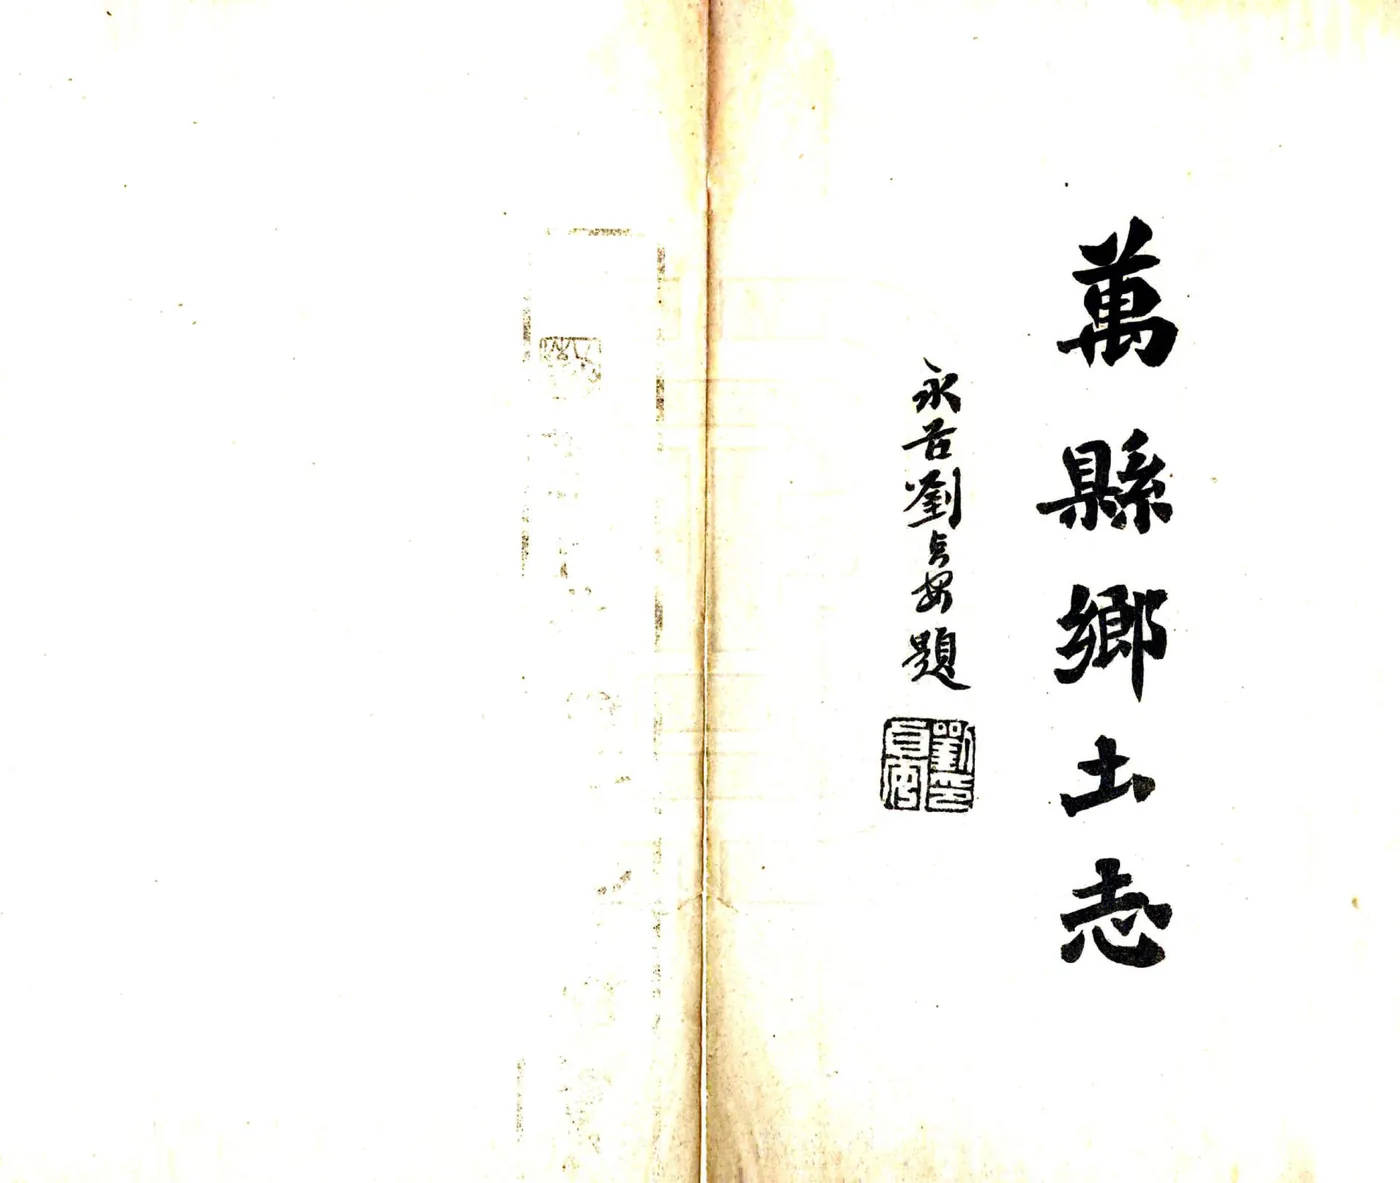 萬縣鄉土志
永古劉貞安題
劉印
貞安